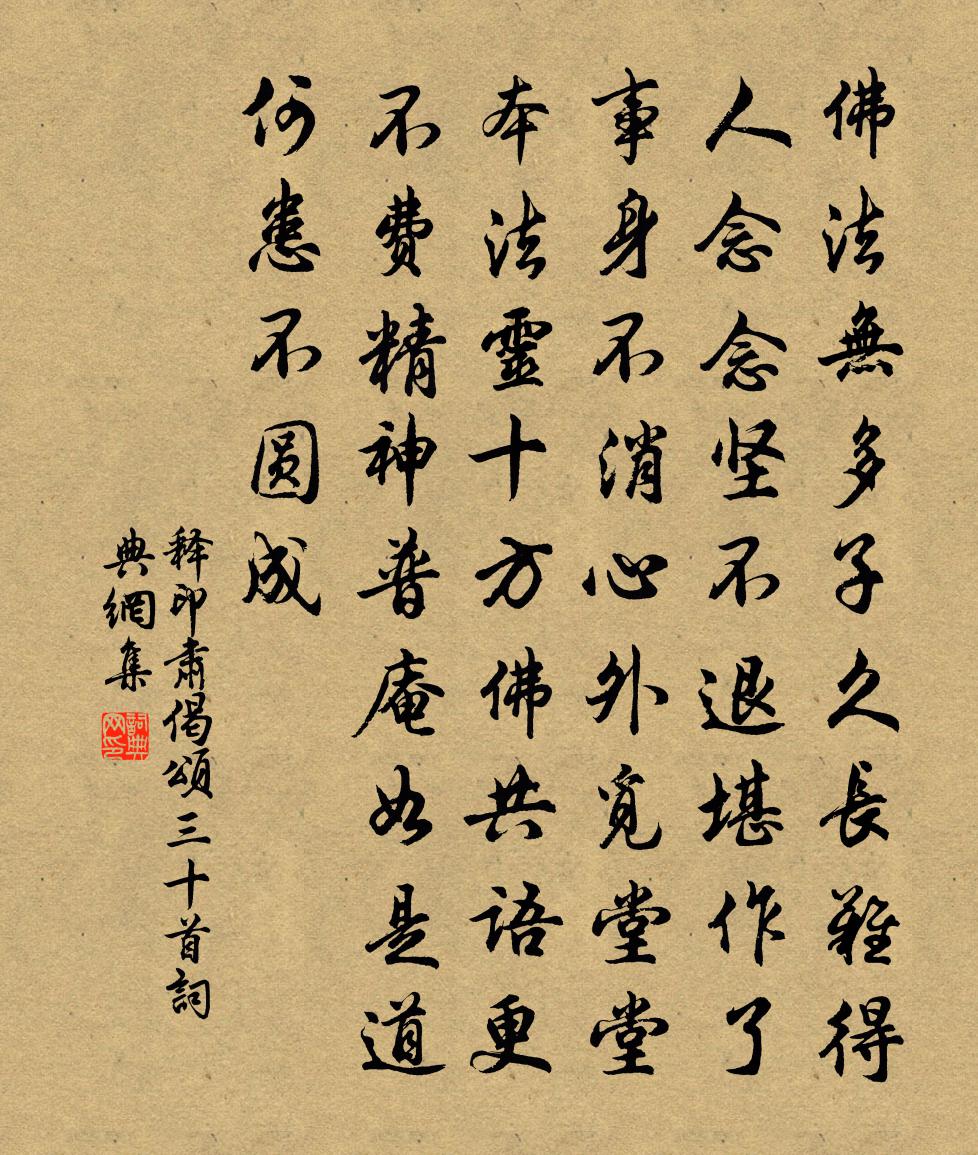 佛法無多子久長難得
人念念坚不退堪作了
事身不消心外覓堂堂
本法靈十方佛共語更
不费精神普庵如是道
何患不圆成
释印肃偈颂三十首詞
典網集
詞典网印